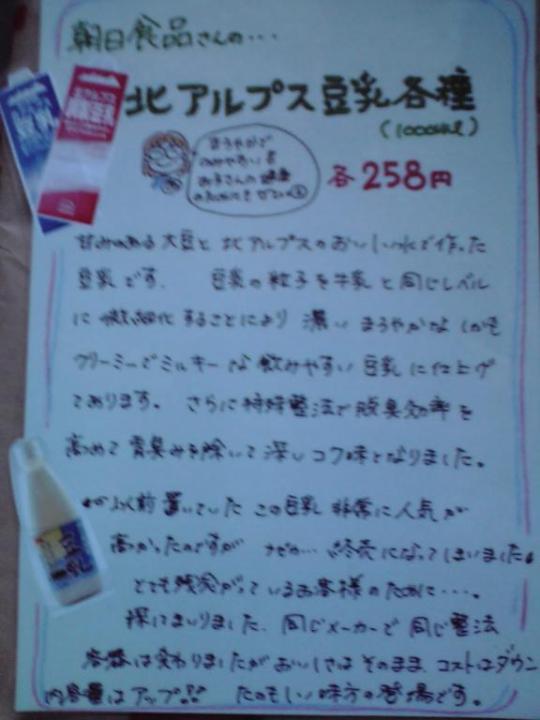 朝日食品さんの…
北アルプス豆乳各種
(1000ml)
まろやかで
のみやすい!!
お子さんの健康
のためにもぜひ
各258円
甘みのある大豆と北アルプスのおいしい水で作った
豆乳です。 豆乳の粒子を牛乳と同じレベル
に微細化することにより 濃い まろやかな しかも
クリーミーでミルキーな飲みやすい豆乳に仕上げ
てあります。 さらに特殊製法で脱臭効率を
高めて青臭みを除いて深いコク味となりました。
以前置いていた この豆乳 非常に人気が
高かったのですが なぜか… 終売になってしまいました。
とても残念がっているお客様のために…。
探してまいりました。同じメーカーで同じ製法
容器は変わりましたがおいしさはそのまま コストはダウン
内容量はアップ!! たのもしい味方の登場です。
豆乳